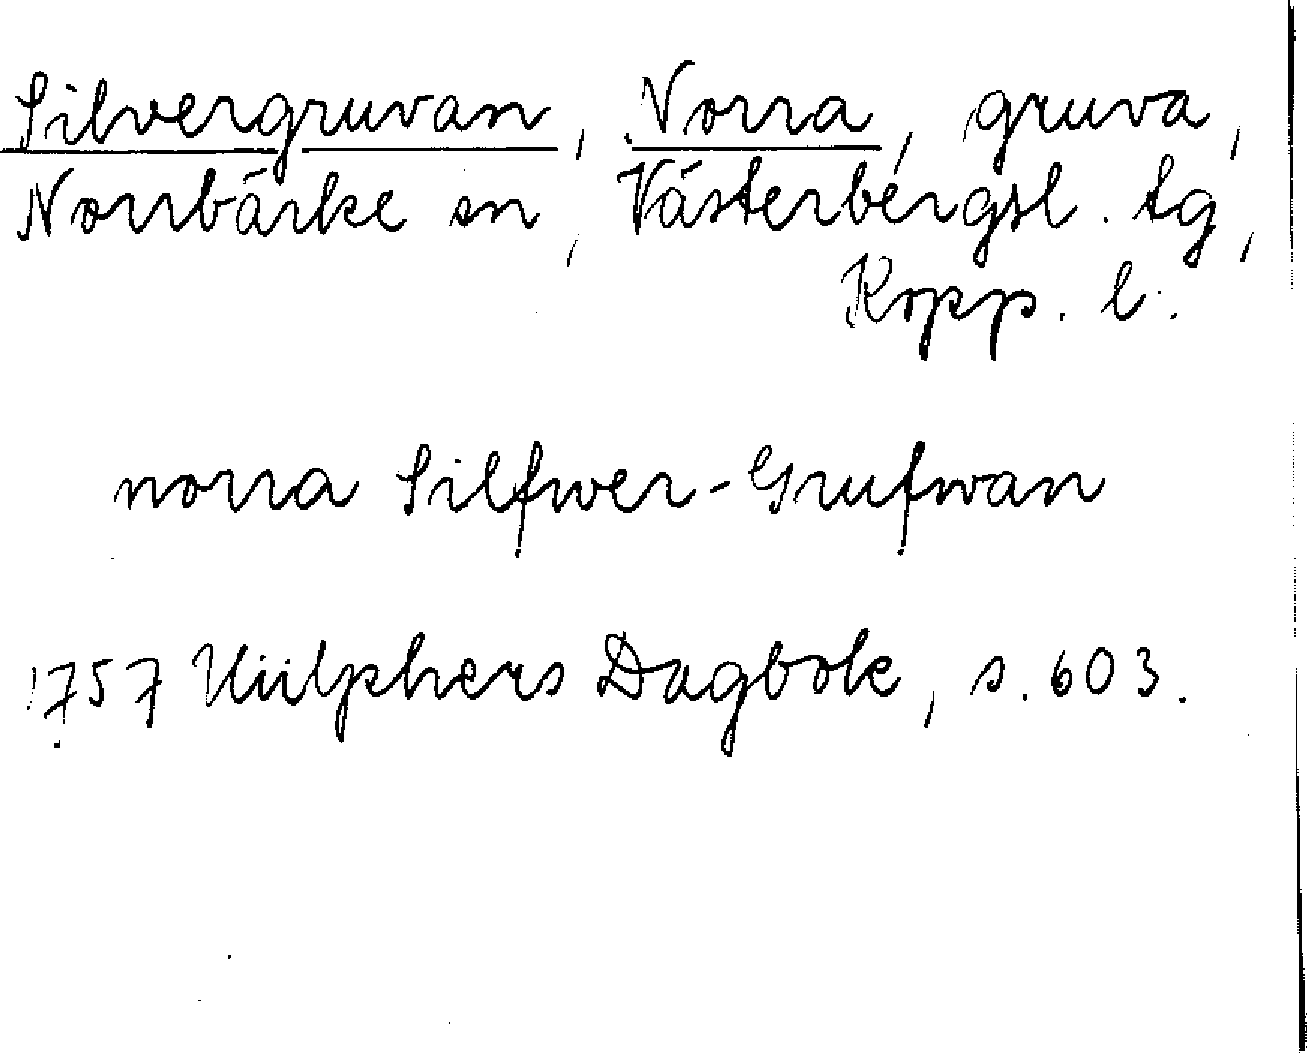 Silvergruvan, Norra, gruva,
Norrbärke sn, Västerbergsl. tg,
Kopp. l.
norra Silfwer-Grufwan
1757 Hülphers Dagbok, s. 603.